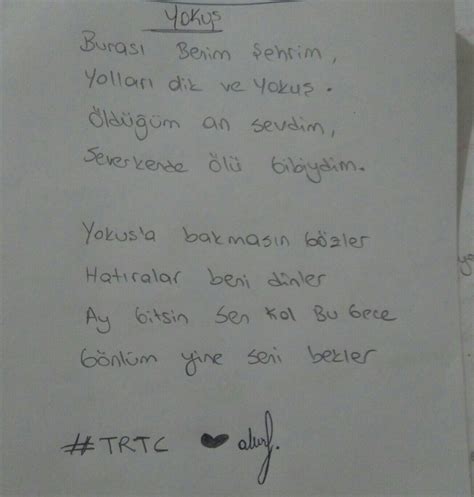 Yokuş
Burası Benim Şehrim,
Yolları dik ve Yokuş.
Öldüğüm an sevdim,
Severkende ölü gibiydim.
Yokuş'a bakmasın gözler
Hatıralar beni dinler
Ay Gitsin Sen Kal Bu Gece
Gönlüm yine seni bekler
#TRTC ♥